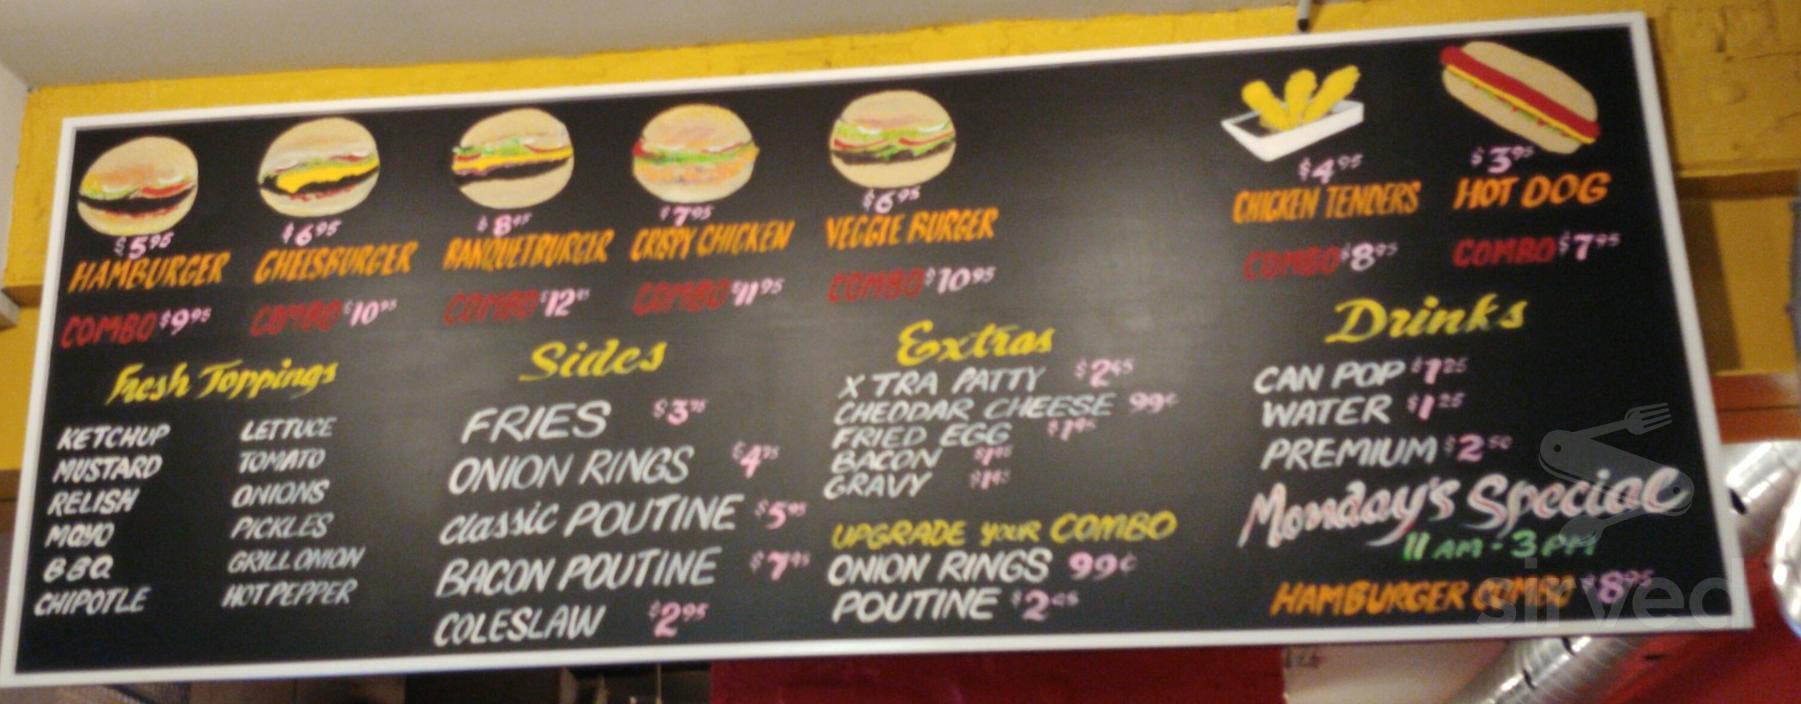 $5.95
HAMBURGER
COMBO $9.95
$6.95
CHEESBURGER
COMBO $10.95
$8.95
BANQUETBURGER
COMBO $12
$7.95
CRISPY CHICKEN
COMBO $11.95
$6.95
VEGGIE BURGER
COMBO $10.95
$4.95
CHICKEN TENDERS
COMBO $8.95
$3.95
HOT DOG
COMBO $7.95
Fresh Toppings
KETCHUP
MUSTARD
RELISH
MAYO
BBQ
CHIPOTLE
LETTUCE
TOMATO
ONIONS
PICKLES
GRILL ONION
HOT PEPPER
Sides
FRIES $3
ONION RINGS $4
Classic POUTINE $5.95
BACON POUTINE $7.95
COLESLAW $2.95
Extras
X TRA PATTY $2
CHEDDAR CHEESE 99¢
FRIED EGG
BACON
GRAVY
UPGRADE YOUR COMBO
ONION RINGS 99¢
POUTINE $2
Drinks
CAN POP $1.25
WATER $1.25
PREMIUM $2.50
Monday's Special
11 AM - 3 PM
HAMBURGER COMBO $8.95
sirved